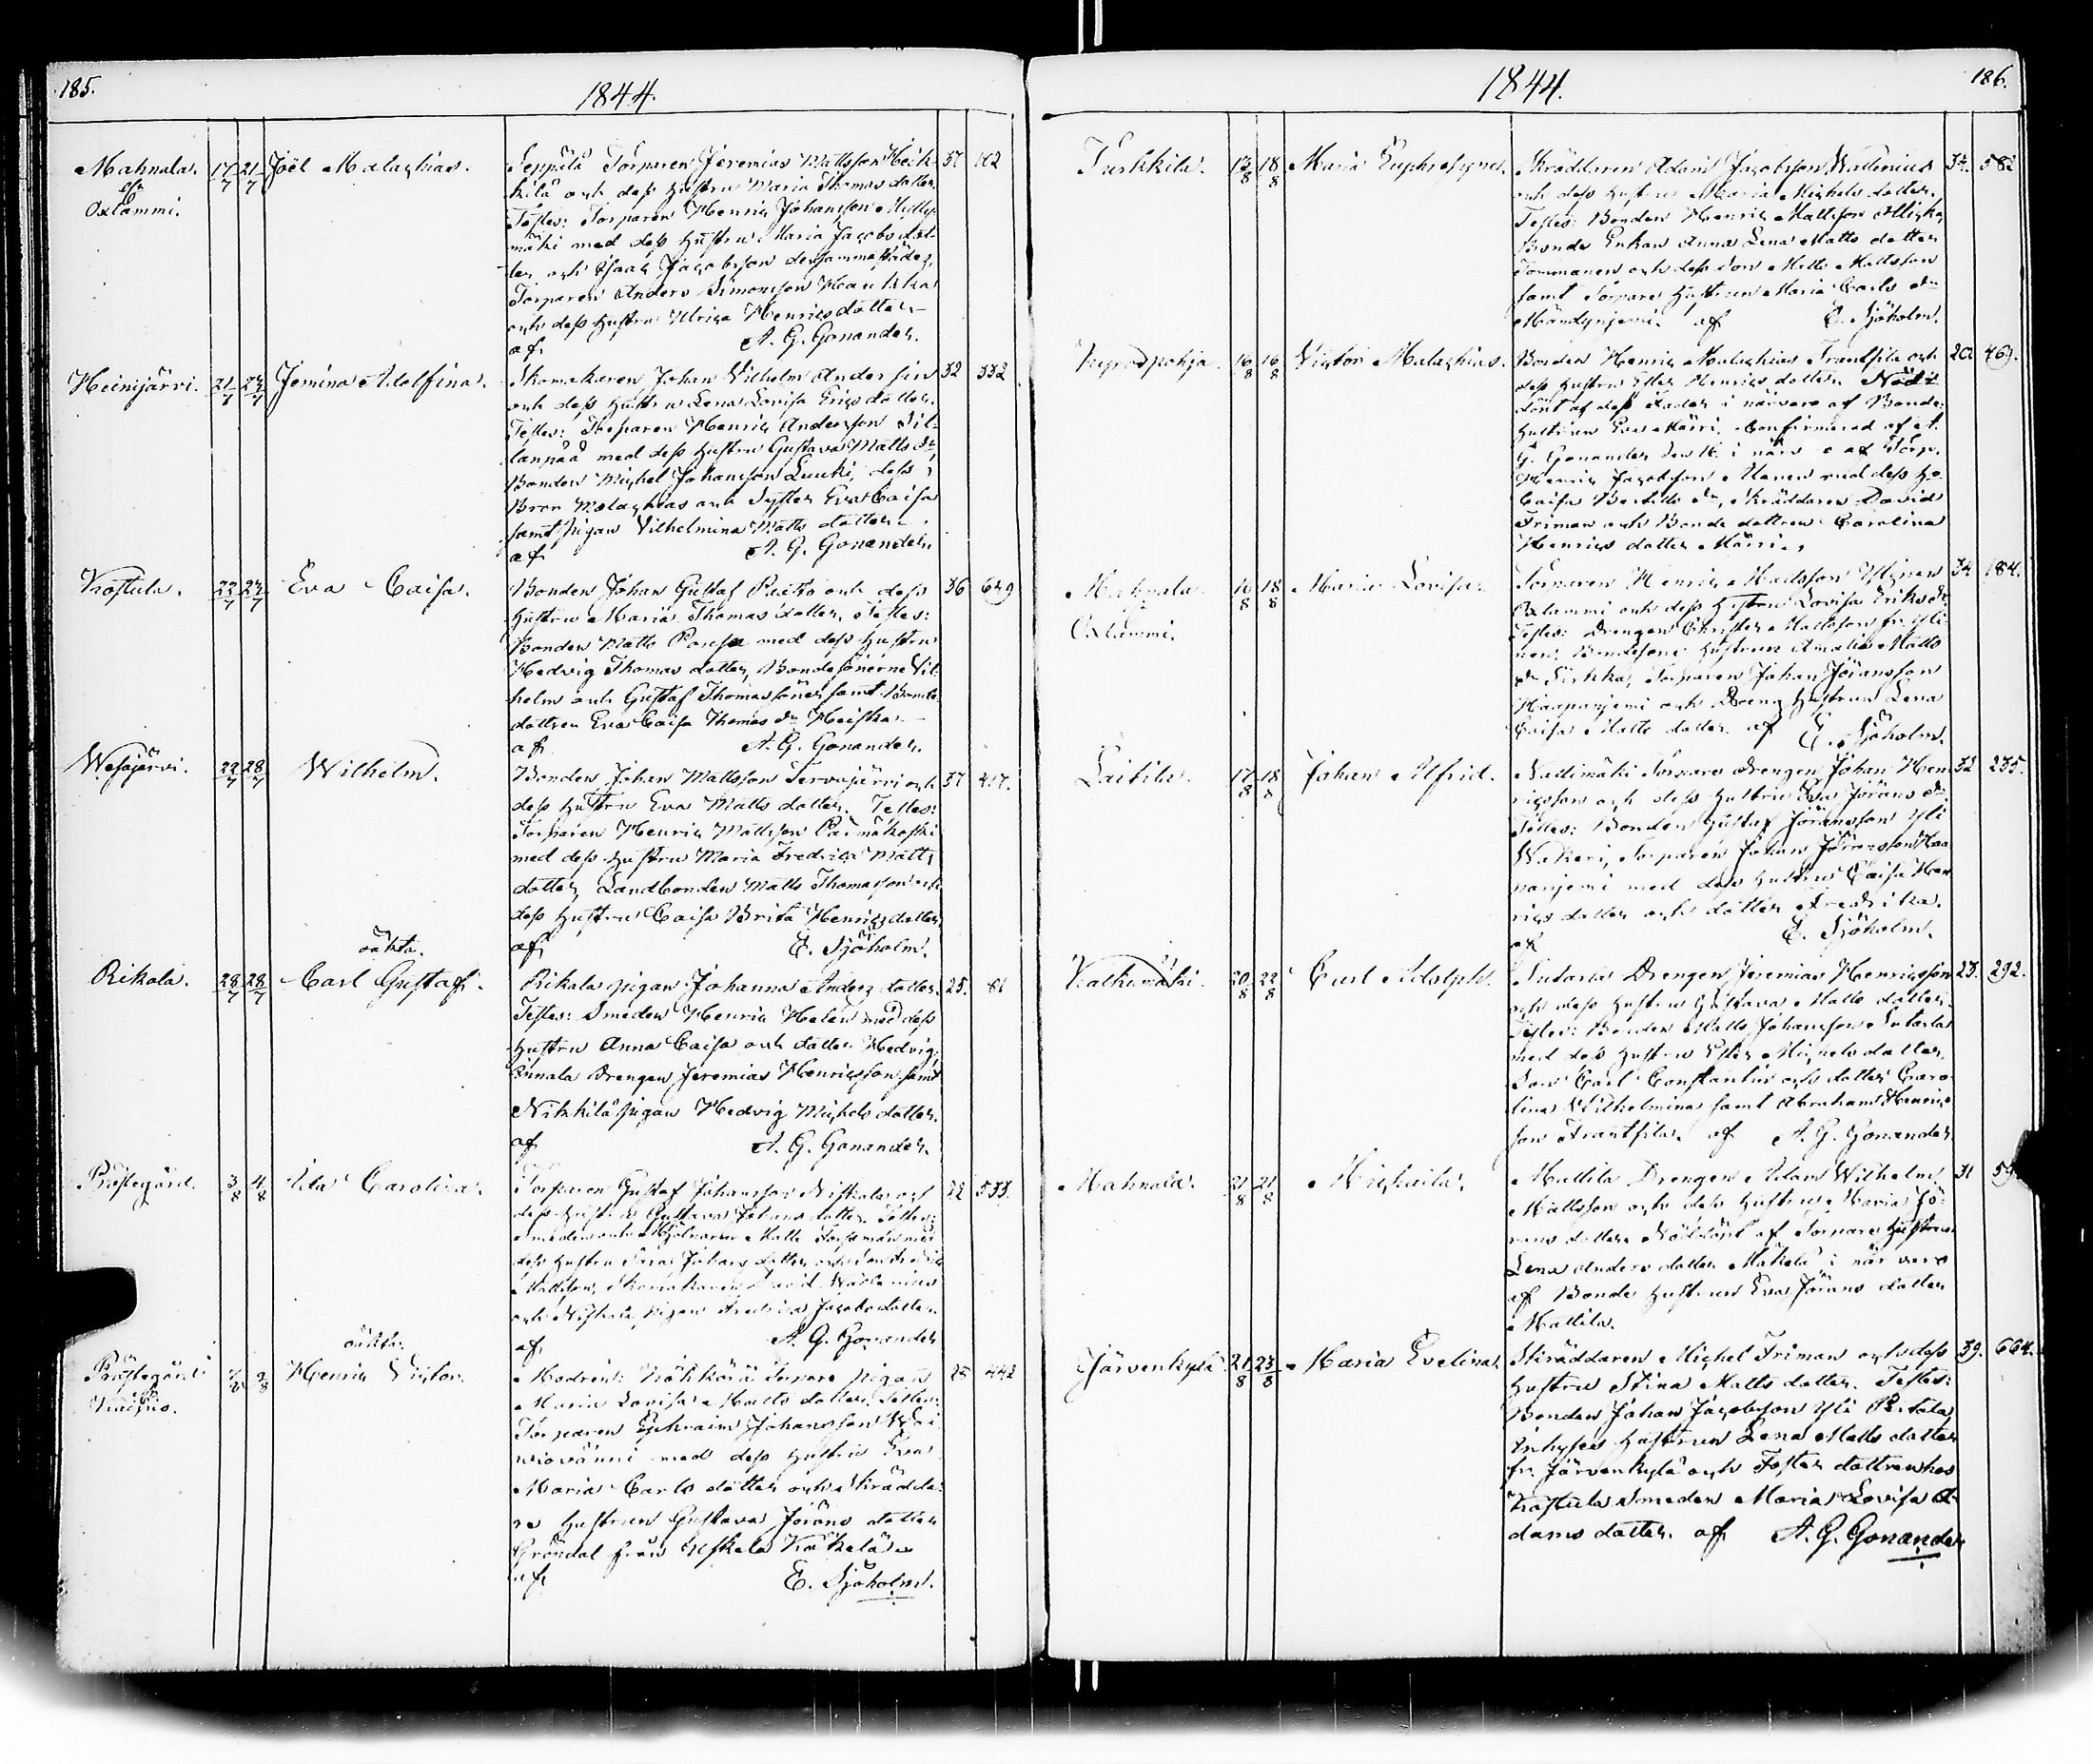 185.
1844.
Mahnala. 17/7 21/7 Joël Malachias. Seppälä Torparen Jeremias Mattsson Heik- 37 162
el. kilä och dess hustru Maria Thomas dotter.
Oxlammi. Testes: Torparen Henric Johansson Mylly-
mäki med dess hustru Maria Jacobs dot-
ter och Isaac Jacobsson dersammastädes,
Torparen Anders Simonsson Hauhka
och dess hustru Ulrica Henrics dotter.
af A. G. Gonander.
Heinijärvi. 21/7 24/7 Jemina Adolfina. Skomakaren Johan Wilhelm Andersin 32 332
och dess hustru Lena Lovisa Erics dotter.
Testes: Torparen Henric Andersson Sil-
lanpää med dess hustru Gustava Matts dr,
Bonden Michel Johansson Luuki, dess
Bror Malachias och Syster Eva Caisa
samt pigan Vilhelmina Matts dotter.
af A. G. Gonander.
Kostula. 22/7 27/7 Eva Caisa. Bonden Johan Gustaf Paitto och dess 36 629
hustru Maria Thomas dotter. Testes:
Bonden Matts med dess hustru
Hedvig Thomas dotter, Bondesönerne Vil-
helm och Gustaf Thomassöner samt Bonde
dottren Eva Caisa Thomas dr Heiska.
af A. G. Gonander.
Wesajärvi. 22/7 28/7 Wilhelm. Bonden Johan Mattsson Tervajärvi och 37 217.
dess hustru Eva Matts dotter. Testes:
Torparen Henric Mattsson Paimäkoski
med dess hustru Maria Fredrica Matts
dotter, Landbonden Matts Thomasson och
dess hustru Caisa Brita Henrics dotter,
af E. Sjöholm.
oäkta.
Rikala. 28/7 28/7 Carl Gustaf. Rikala pigan Johanna Anders dotter. 25. 81
Testes: Smeden Henric Helen med dess
hustru Anna Caisa och dotter Hedvig,
Drengen Jeremias Henricsson samt
Nikkilä pigan Hedvig Michels dotter.
af A. G. Gonander.
Prestegård. 3/8 4/8 Ida Carolina. Torparen Gustaf Johansson Niskala och 22 533.
dess hustru Gustava Johans dotter. Testes:
Smeden och Mjölnaren Matts Forsman med
dess hustru Johans dotter och
Mattsson, Skomakaren David
och Niskala pigan Fredrica Jacobs dotter.
af A. G. Gonander
oäkta.
Prestegård 9/8 Henric Victor. Modren: Torpare pigan 28 442
Maria Lovisa Matts dotter. Testes:
Torparen Ephraim Johansson
med dess hustru Eva
Maria Carls dotter och Skrädda-
re hustrun Gustava Jörans dotter
Gröndal från
af E. Sjöholm.
1844.
186.
Turkkila. 13/8 18/8 Maria Euphrosyne. Skräddaren Adam Jacobsson Wallenius 34. 582
och dess hustru Maria Michels dotter.
Testes: Bonden Henric Mattsson
Bonde Enkan Anna Lena Matts dotter
Tommanen och dess son Matts Mattsson
samt Torpare hustrun Maria Carls dr
Mändynjemi. af E. Sjöholm.
16/8 16/8 Victor Malachias. Bonden Henric Malachias Frantsila och 20 469.
dess hustru Ester Henrics dotter. Nöd-
döpt af dess Fader i närvaro af Bonde-
hustrun Eva Märri. Confirmerad af A.
G. Gonander den 16 i närv. af Torp.
Henric Jacobsson med dess h.
Caisa dr, Skräddaren David
Friman och Bonde dottren Carolina
Henrics dotter Märri.
Mahnala 16/8 18/8 Maria Lovisa. Torparen Henric Madsson Ylinen 34 184.
Oxlammi. Oxlammi och dess hustru Lovisa Eriks dr.
Testes: Drengen Christer Mattsson fr. Yli-
nen, Bondesons hustrun Amalia Matts
dr Sirkka, Torparen Johan Jöransson
Haapanjemi och Dreng hustrun Lena
Caisa Matts dotter. af E. Sjöholm.
Laitila. 17/8 18/8 Johan Alfrid. Torpare Drengen Johan Hen- 32 235.
ricsson och dess hustru Eva Jörans dr.
Testes: Bonden Gustaf Jöransson Yli
Wakeri, Torparen Johan Jöransson Haa-
panjemi med dess hustru Caisa Hen-
rics dotter och dotter Fredrika.
af E. Sjöholm.
Kalkunmäki. 20/8 22/8 Carl Adolph. Sutaria Drengen Jeremias Henricsson 23. 292.
och dess hustru Gustava Matts dotter.
Testes: Bonden Matts Johansson
med dess hustru Ester Michels dotter,
Son Carl Constantin och dotter Caro-
lina Wilhelmina samt Abraham Henrics-
son Frantsila. af A. G. Gonander
Mahnala. 21/8 21/8 Michaila. Mattila Drengen Adam Wilhelm 31 59
Mattsson och dess hustru Maria Jö-
rans dotter. Nöddöpt af Torpare hustrun
Lena Anders dotter Mäkelä i när varo
af Bonde hustrun Eva Jörans dotter
Mattila.
Järvenkylä. 21/8 25/8 Maria Evelina. Skräddaren Michel Friman och dess 39. 664.
hustru Stina Matts dotter. Testes:
Bonden Johan Jacobsson Yli Pertola,
Inhyses hustrun Lena Matts dotter
fr. Järvenkylä och Foster dottren hos
Kostula Smeden Maria Lovisa A-
dams dotter. af A. G. Gonander